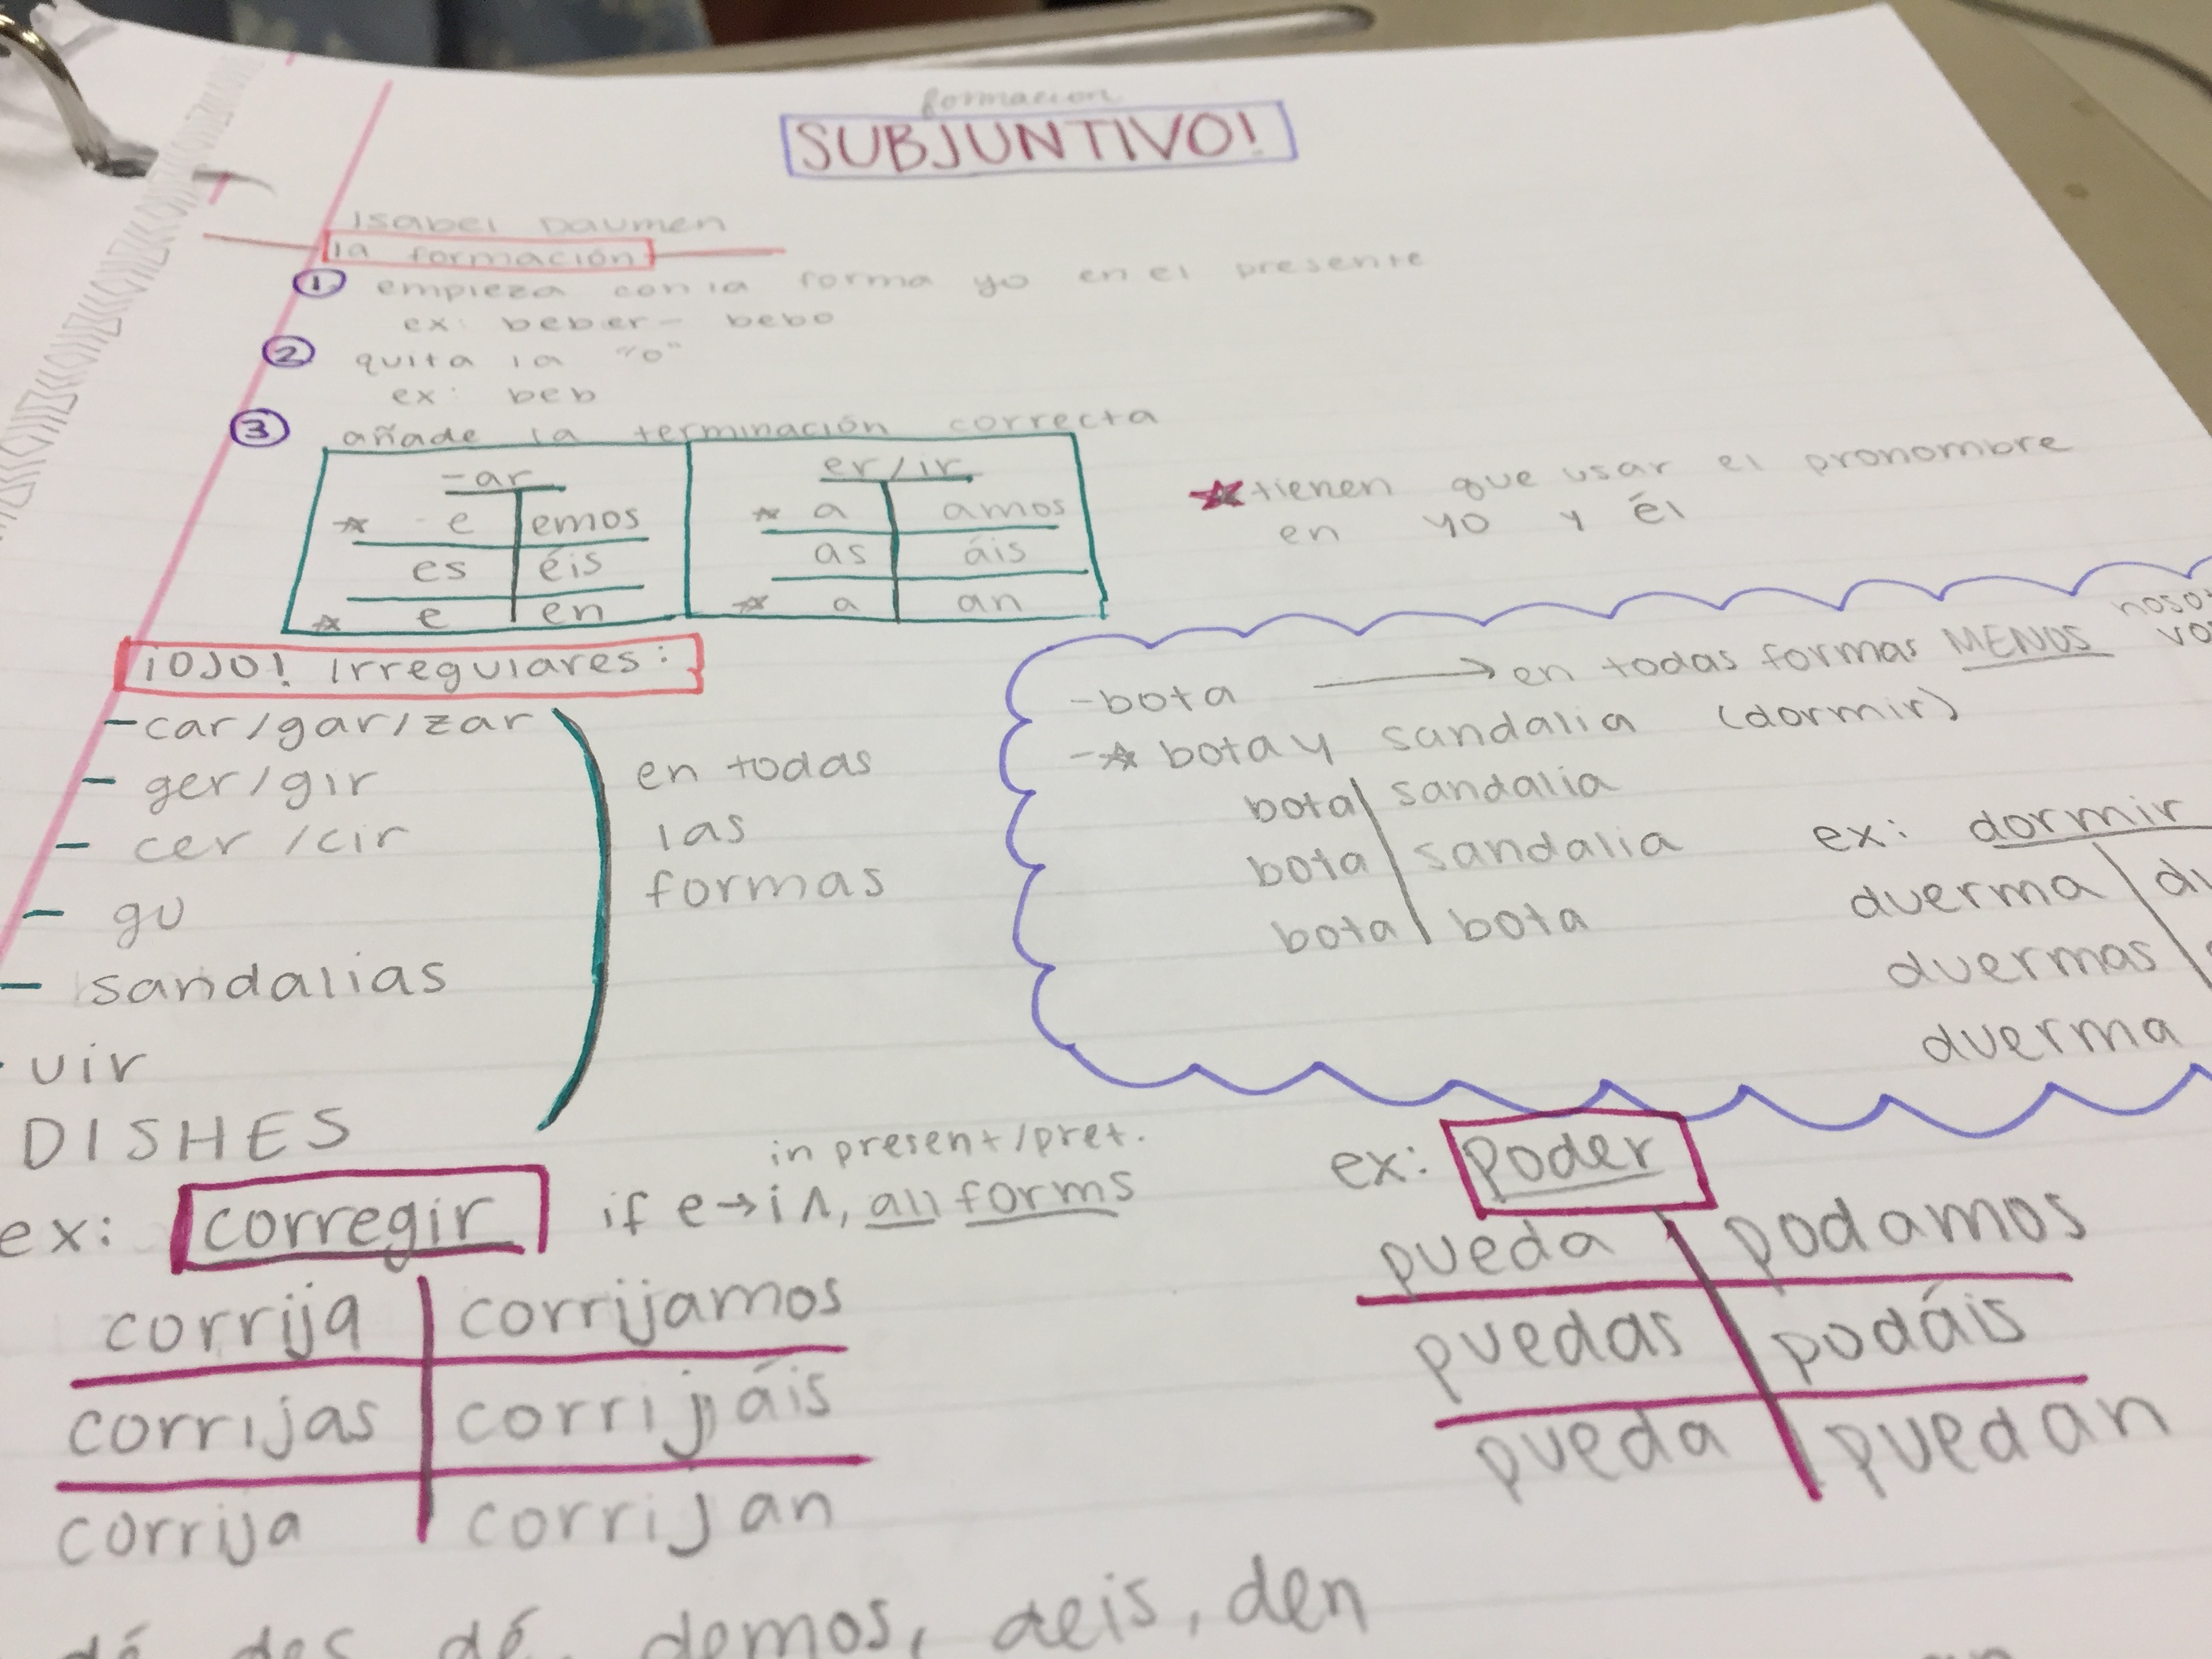 formacion
SUBJUNTIVO!
Isabel Daumen
la formación
① empieza con la forma yo en el presente
ex: beber - bebo
② quita la "o"
ex: beb
③ añade la terminación correcta
-ar
e emos
es éis
e en
er/ir
a amos
as áis
a an
tienen que usar el pronombre
en yo y él
¡OJO! Irregulares:
- car/gar/zar
- ger/gir
- cer/cir
- go
- sandalias
uir
DISHES
en todas
las
formas
- bota → en todas formas MENOS
- bota y sandalia (dormir)
bota sandalia
bota sandalia
bota bota
ex: dormir
duerma
duermas
duerma
ex: corregir
in present/pret.
if e→i ʌ, all forms
corrija corrijamos
corrijas corrijáis
corrija corrijan
ex: poder
pueda podamos
puedas podáis
pueda puedan
dé des dé demos, deis, den